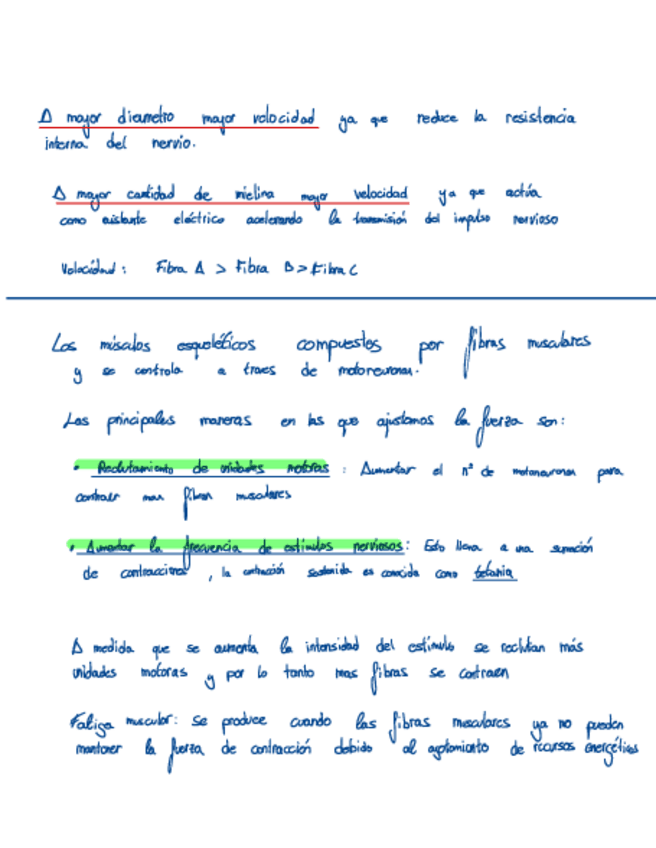 A mayor diametro mayor velocidad ya que reduce la resistencia
interna del nervio.
A mayor cantidad de mielina mayor velocidad ya que actúa
como aislante eléctrico acelerando la transmisión del impulso nervioso
Velocidad: Fibra A > Fibra B > Fibra C
Los músculos esqueléticos compuestos por fibras musculares
y se controla a traves de motoneuronas.
Las principales maneras en las que ajustamos la fuerza son:
• Reclutamiento de unidades motoras : Aumentar el nº de motoneuronas para
contraer mas fibras musculares
• Aumentar la frecuencia de estimulos nerviosos: Esto lleva a una sumación
de contracciones, la contracción sostenida es conocida como tetania
A medida que se aumenta la intensidad del estímulo se reclutan más
unidades motoras y por lo tanto mas fibras se contraen
Fatiga muscular: se produce cuando las fibras musculares ya no pueden
mantener la fuerza de contracción debido al agotamiento de recursos energéticos